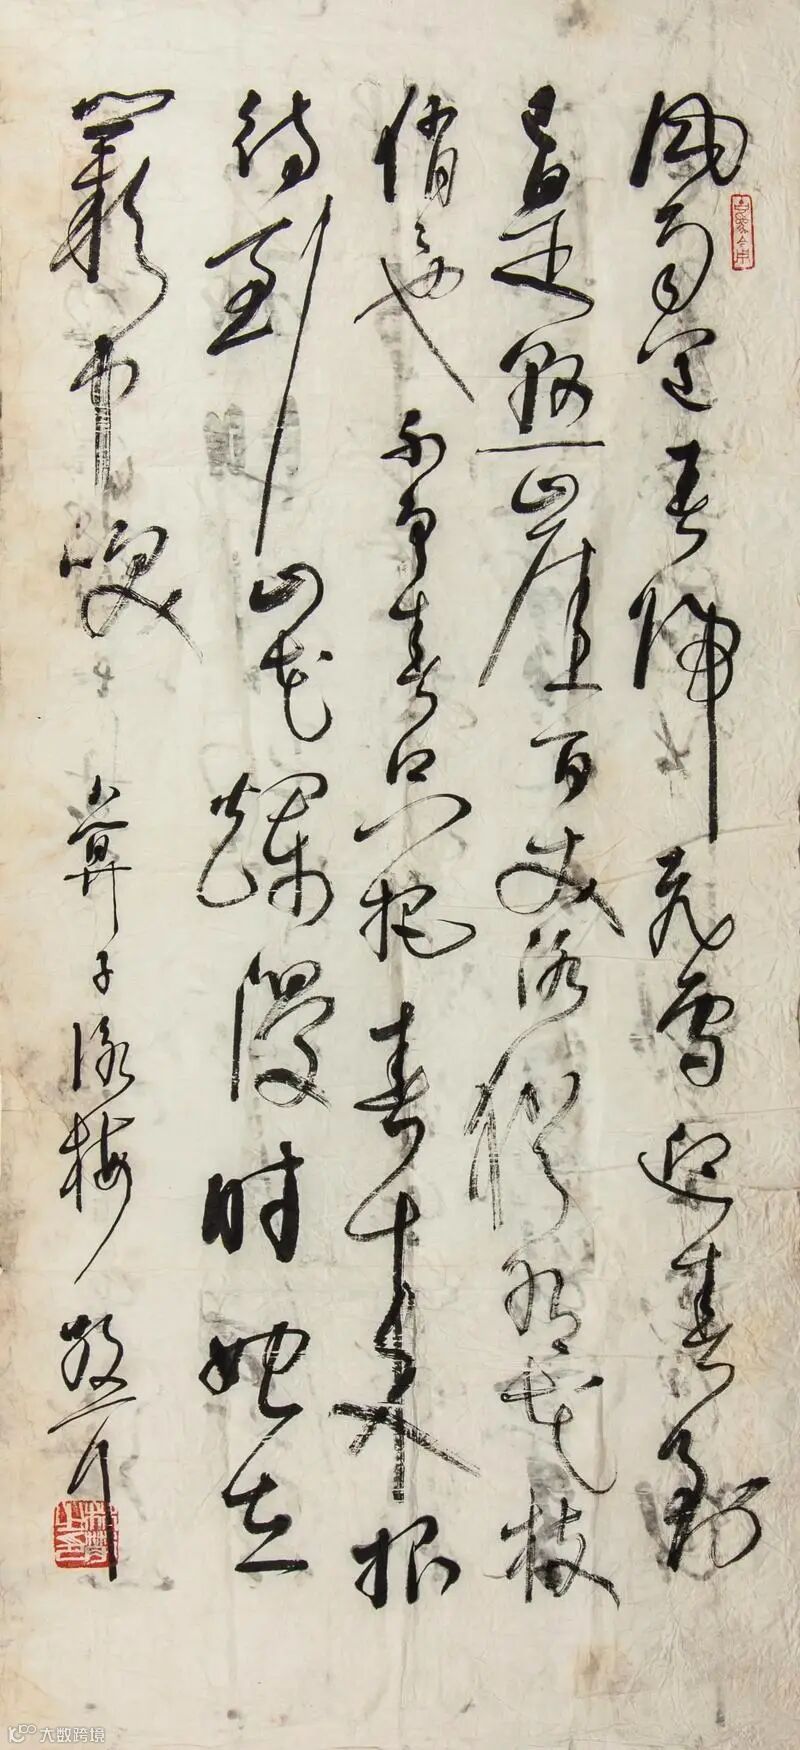 风雨送春归飞雪迎春到
已是悬崖百丈冰犹有花枝
俏也不争春只把春来报
待到山花爛漫时她在
叢中咲 卜算子詠梅
大数跨境